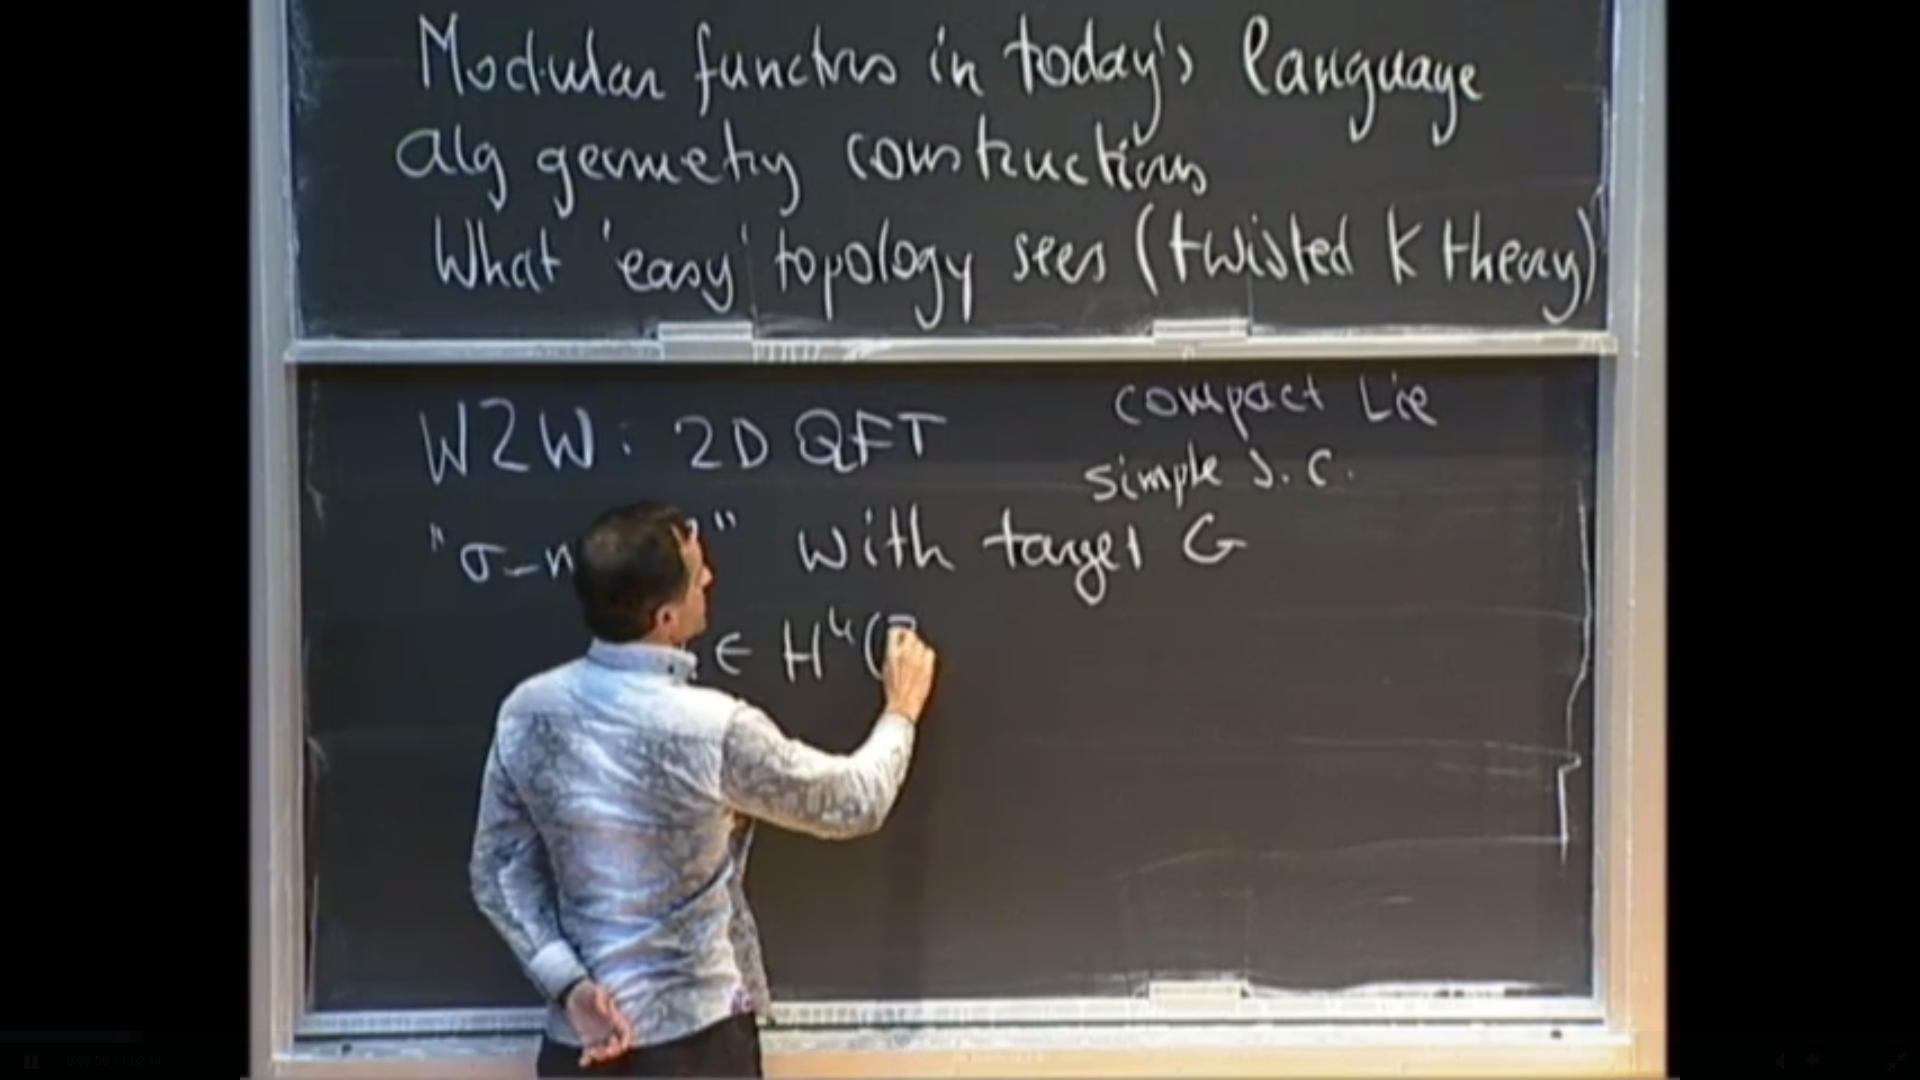 Modular functors in today's language
alg geometry constructions
What 'easy' topology sees (twisted K theory)
WZW: 2D QFT
compact Lie
simple s.c.
"σ-m " with target G
∈ H⁴(
0:03:56 / 1:02:14